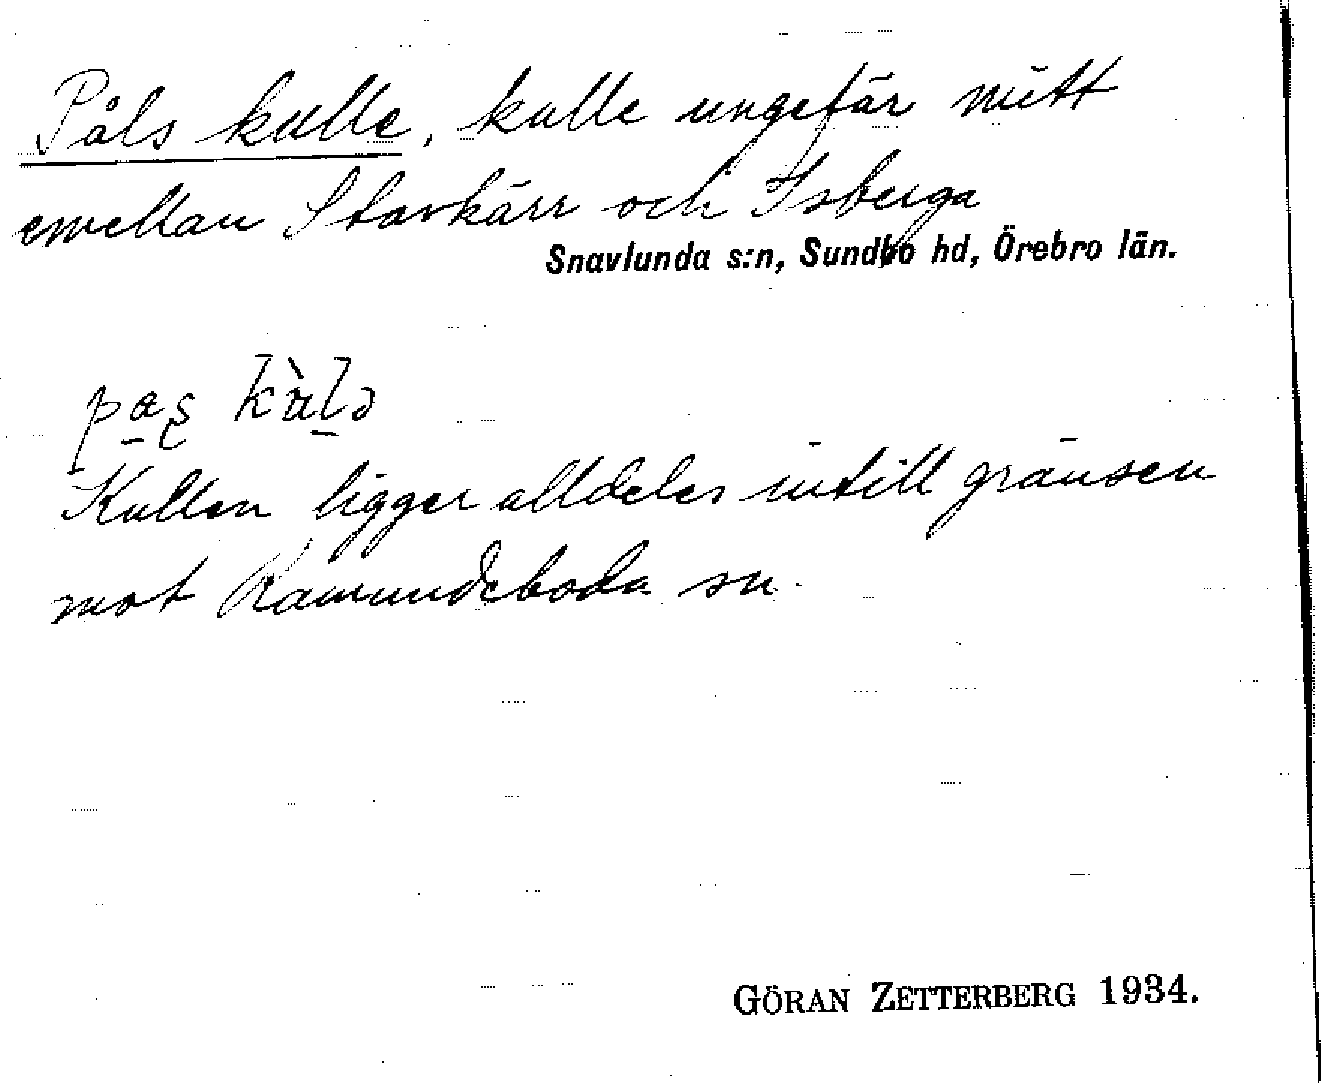 Påls kulle, kulle ungefär mitt
emellan Stavkärr och Isberga
Snavlunda s:n, Sundbo hd, Örebro län.
Kullen ligger alldeles intill gränsen
mot Ramundeboda sn.
GÖRAN ZETTERBERG 1934.